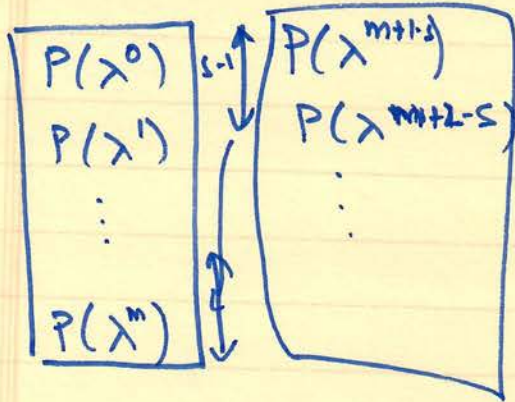 P(λ⁰)
P(λ¹)
⋮
P(λᵐ)
s-1
P(λ^{m+1-s})
P(λ^{m+2-s})
⋮